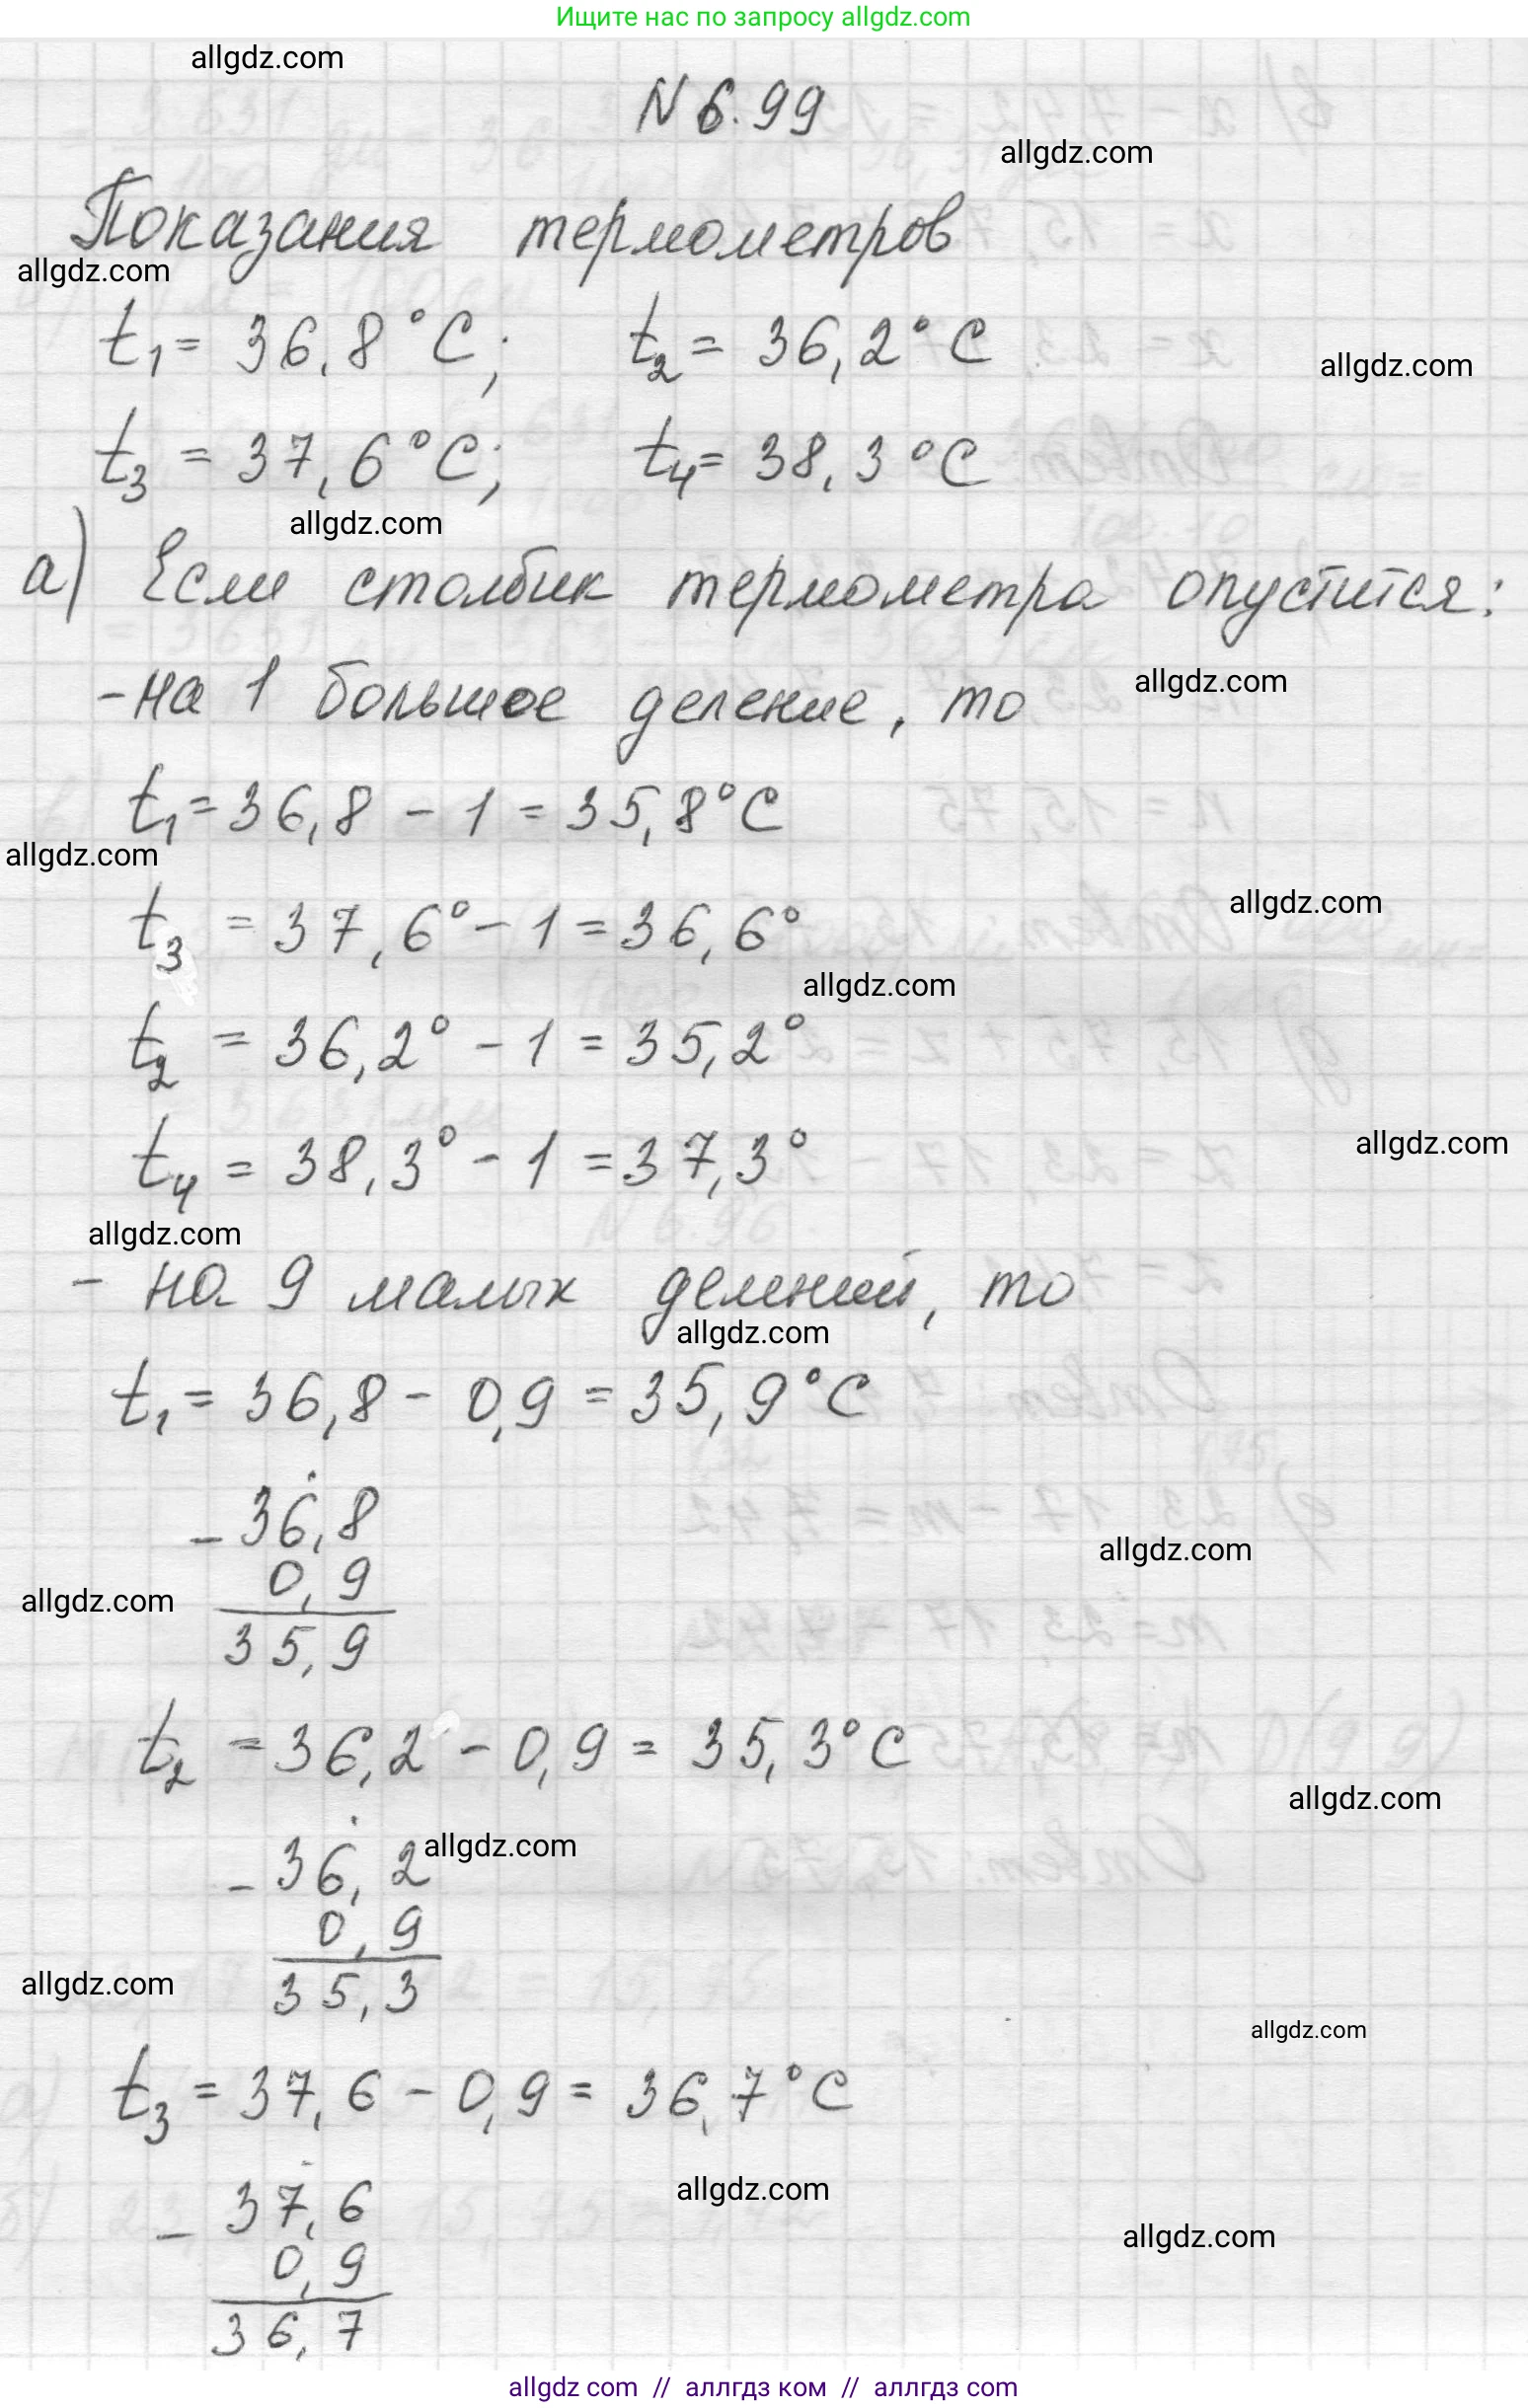 Ищите нас по запросу allgdz.com
allgdz.com
N 6.99
allgdz.com
Показания термометров
allgdz.com
t₁ = 36,8 °C; t₂ = 36,2° C
allgdz.com
t₃ = 37,6°C; t₄ = 38,3 °C
allgdz.com
а) Если столбик термометра опустится:
- на 1 большое деление, то
allgdz.com
t₁ = 36,8 - 1 = 35,8°C
allgdz.com
allgdz.com
t₃ = 37,6° - 1 = 36,6°
allgdz.com
t₂ = 36,2° - 1 = 35,2°
t₄ = 38,3° - 1 = 37,3°
allgdz.com
allgdz.com
- на 9 малых делений, то
allgdz.com
t₁ = 36,8 - 0,9 = 35,9°C
- 36,8
allgdz.com
0,9
allgdz.com
35,9
t₂ = 36,2 - 0,9 = 35,3°C
allgdz.com
- 36,2
allgdz.com
0,9
35,3
allgdz.com
allgdz.com
t₃ = 37,6 - 0,9 = 36,7°C
allgdz.com
- 37,6
allgdz.com
0,9
36,7
allgdz com // аллгдз ком // аллгдз com